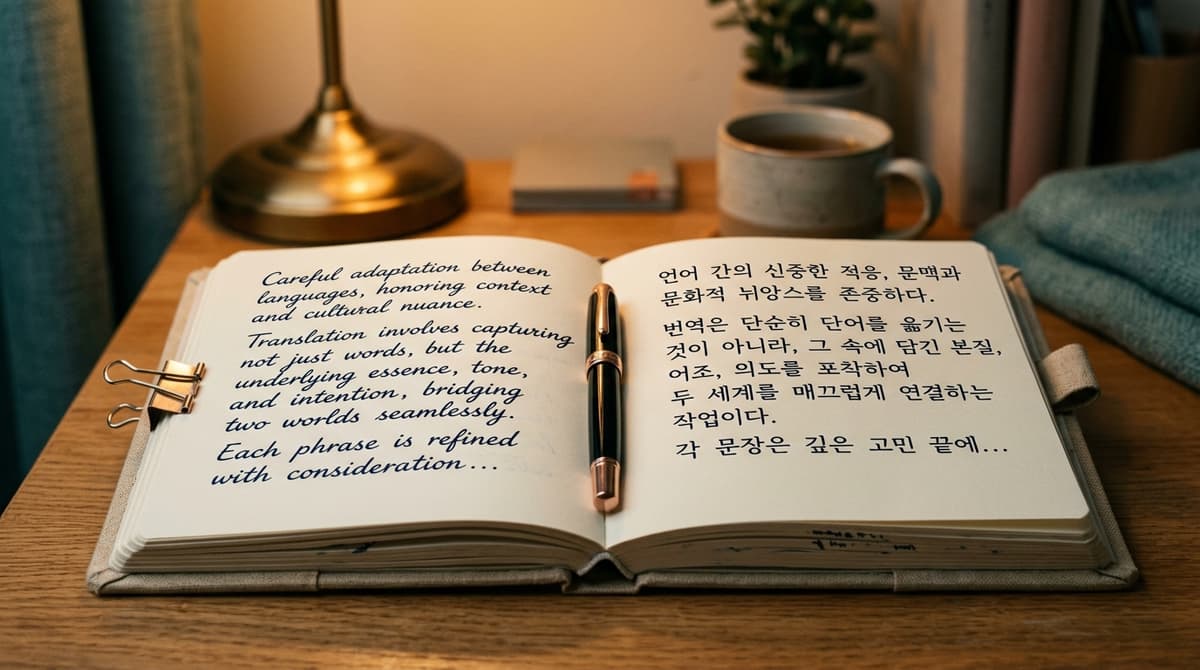 Careful adaptation between
languages, honoring context
and cultural nuance.
Translation involves capturing
not just words, but the
underlying essence, tone,
and intention, bridging
two worlds seamlessly.
Each phrase is refined
with consideration...
언어 간의 신중한 적응, 문맥과
문화적 뉘앙스를 존중하다.
번역은 단순히 단어를 옮기는
것이 아니라, 그 속에 담긴 본질,
어조, 의도를 포착하여
두 세계를 매끄럽게 연결하는
작업이다.
각 문장은 깊은 고민 끝에...